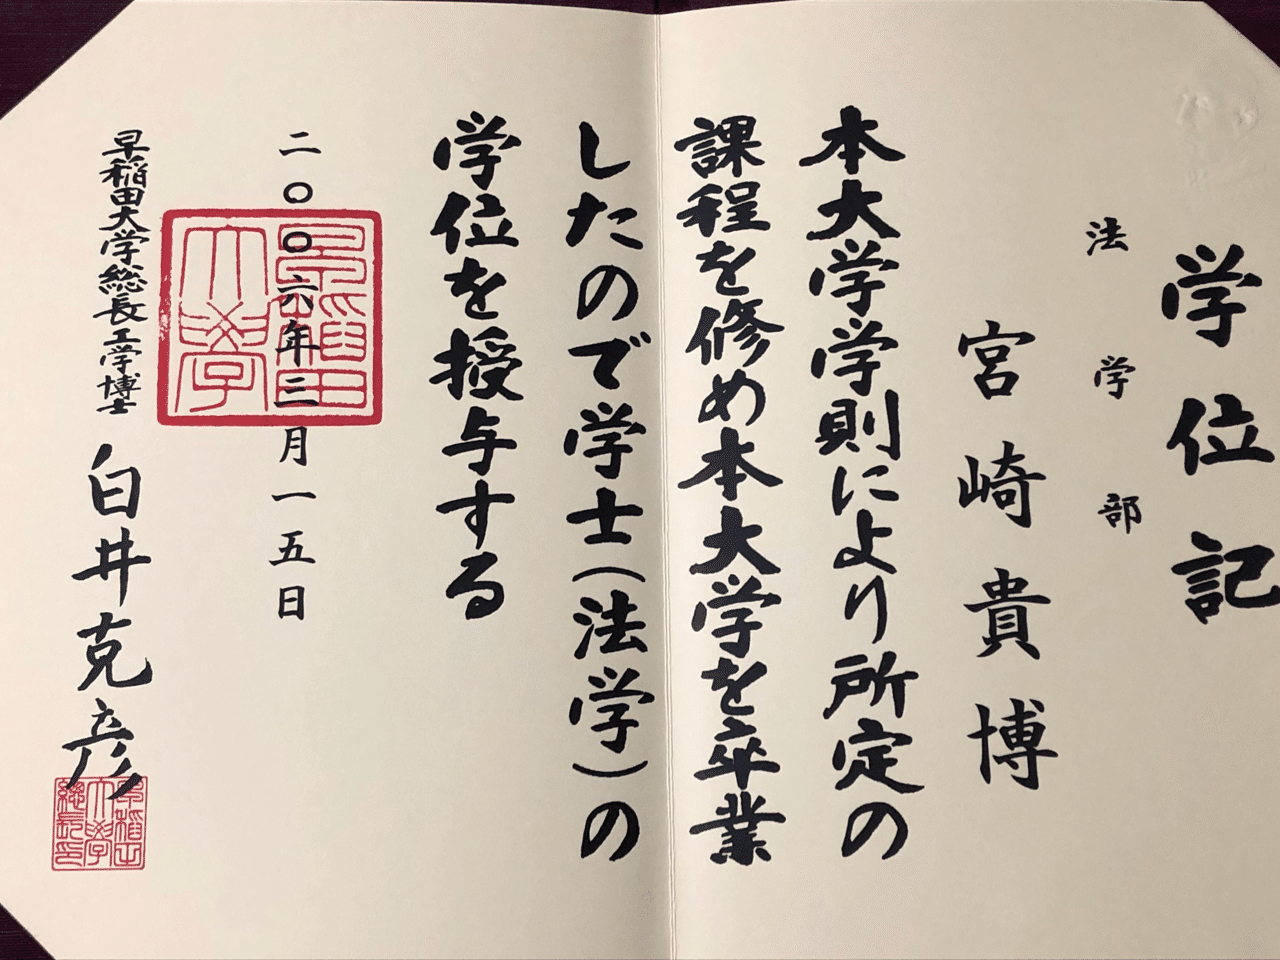 学位記
法学部
宮崎貴博
本大学学則により所定の
課程を修め本大学を卒業
したので学士(法学)の
学位を授与する
二〇〇六年三月一五日
早稲田大学
早稲田大学総長工学博士 白井克彦
早稲田大学総長印